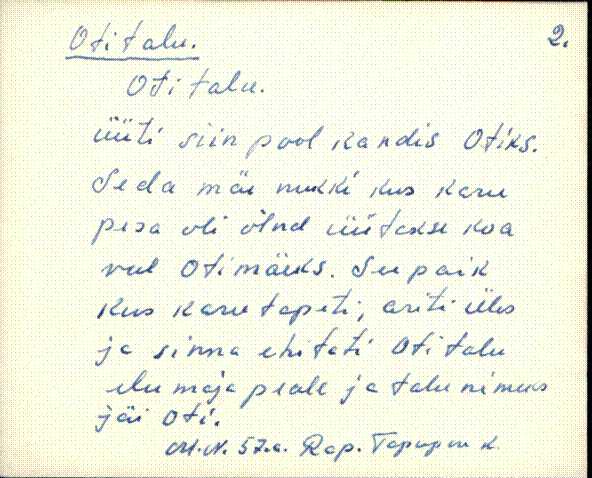 Oti talu. 2.
Oti talu.
üüti siin pool kandis Otiks.
Seda mäe nukki kus karu
pesa oli õlnd üütakse koa
veel Otimäeks. See paik
kus karu tapeti, ariti üles
ja sinna ehitati Oti talu
elu maja peale ja talu nimeks
jäi Oti.
57.a. Rap.